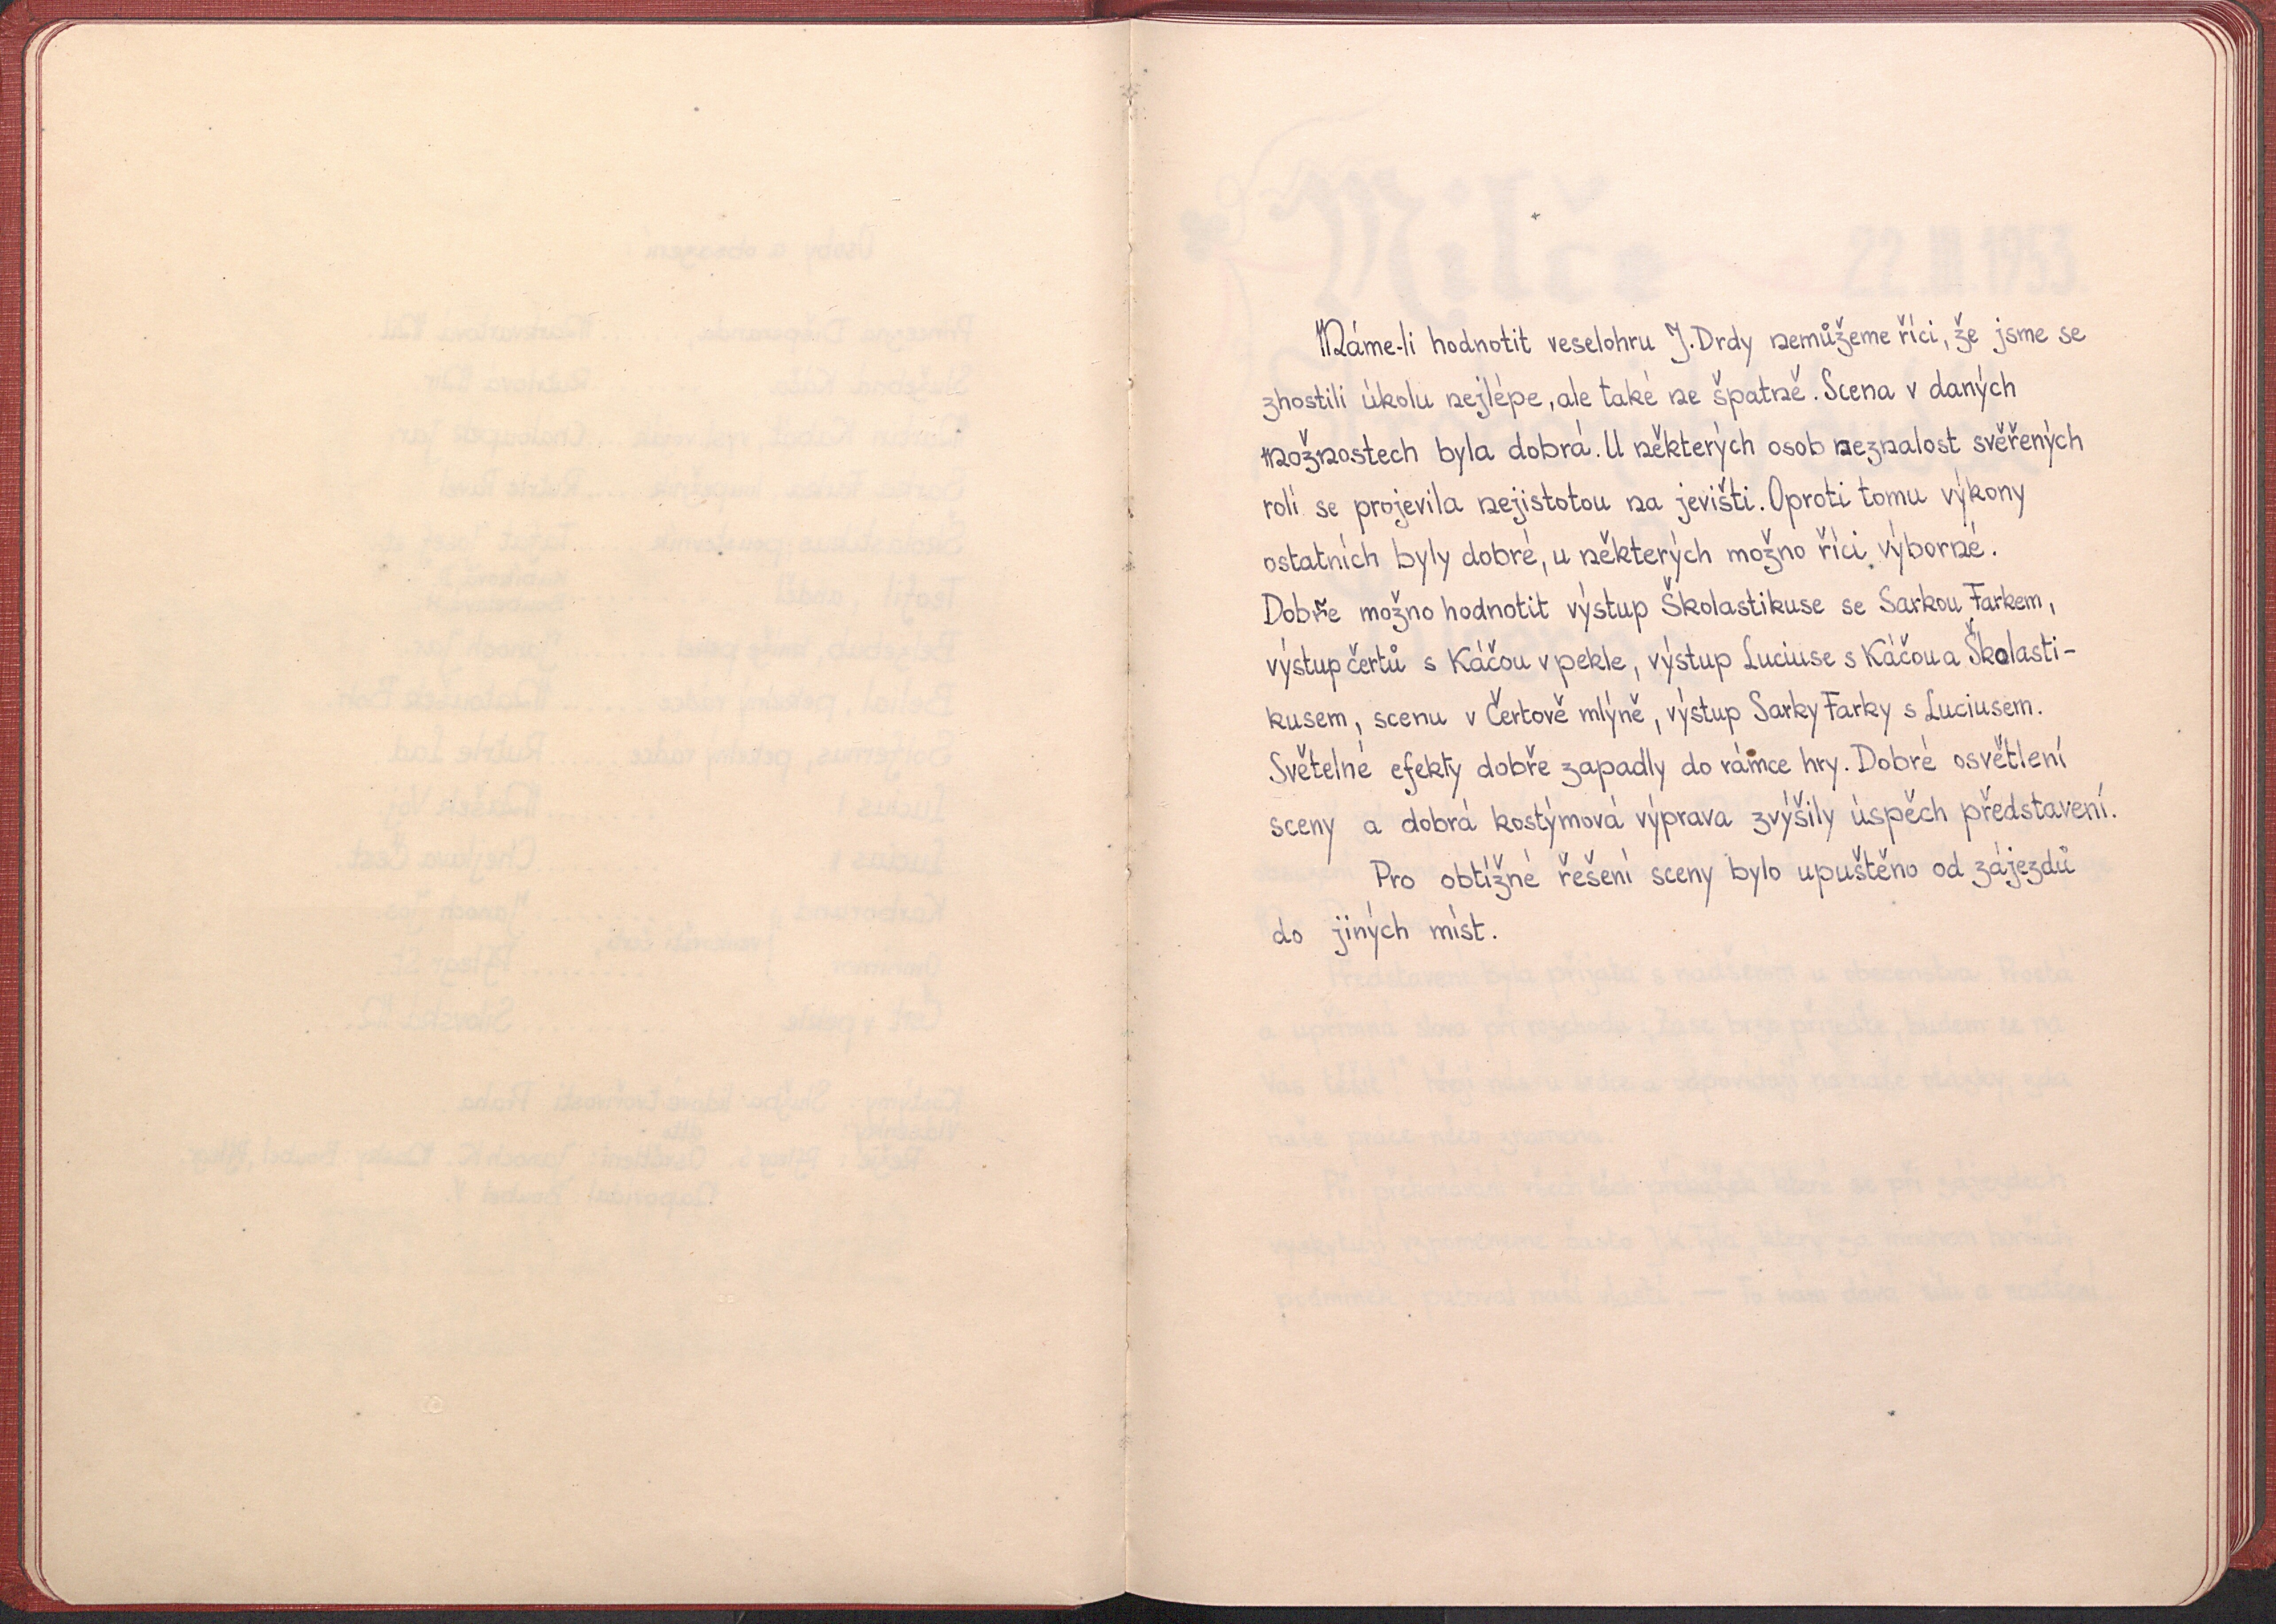 Máme-li hodnotit veselohru J. Drdy nemůžeme říci, že jsme se
zhostili úkolu nejlépe, ale také ne špatně. Scena v daných
možnostech byla dobrá. U některých osob neznalost svěřených
rolí se projevila nejistotou na jevišti. Oproti tomu výkony
ostatních byly dobré, u některých možno říci výborné.
Dobře možno hodnotit výstup Školastikuse se Sarkou Farkem,
výstup čertů s Káčou v pekle, výstup Luciuse s Káčou a Školasti-
kusem, scenu v Čertově mlýně, výstup Sarky Farky s Luciusem.
Světelné efekty dobře zapadly do rámce hry. Dobré osvětlení
sceny a dobrá kostýmová výprava zvýšily úspěch představení.
Pro obtížné řešení sceny bylo upuštěno od zájezdů
do jiných míst.